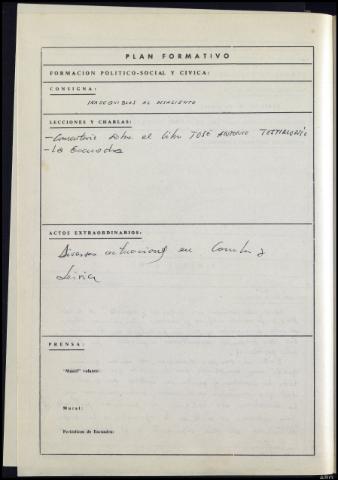 PLAN FORMATIVO
FORMACION POLITICO-SOCIAL Y CIVICA:
CONSIGNA:
INASEQUIBLES AL DESALIENTO
LECCIONES Y CHARLAS:
- Comentario sobre el libro JOSÉ ANTONIO TESTIMONIO
- La Escuadra
ACTOS EXTRAORDINARIOS:
Diversas actuaciones en
PRENSA:
"Misil" volante:
Mural:
Periódicos de Escuadra: